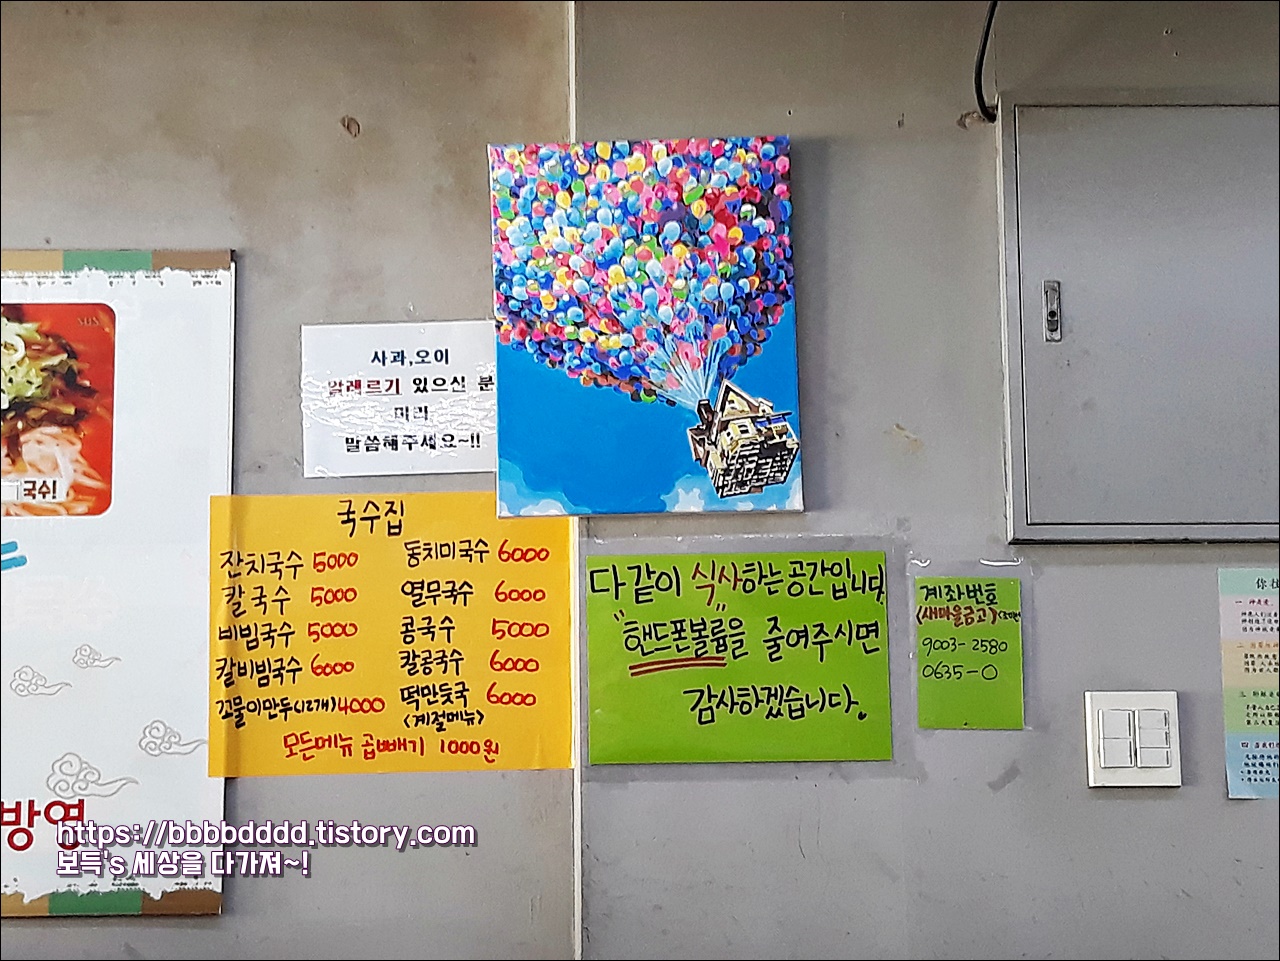 SBS
국수!
방영
사과,오이
알레르기 있으신 분
미리
말씀해주세요~!!
국수집
잔치국수 5000
칼국수 5000
비빔국수 5000
칼비빔국수 6000
꼬물이만두(12개) 4000
동치미국수 6000
열무국수 6000
콩국수 5000
칼콩국수 6000
떡만둣국 6000
<계절메뉴>
모든메뉴 곱빼기 1000원
다같이 식사하는공간입니다.
"핸드폰볼륨"을 줄여주시면
감사하겠습니다.
계좌번호
<새마을금고>
9003-2580
0635-0
https://bbbbdddd.tistory.com
보득's 세상을 다가져~!